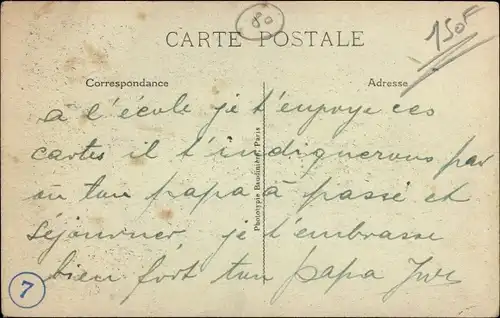 80
150F
CARTE POSTALE
Correspondance
Adresse
Phototypie Baudinière, Paris
à l'école je t'envoye ces
cartes il t'indiquerons par
ou ton papa à passé et
séjourner, je t'embrasse
bien fort ton papa
7